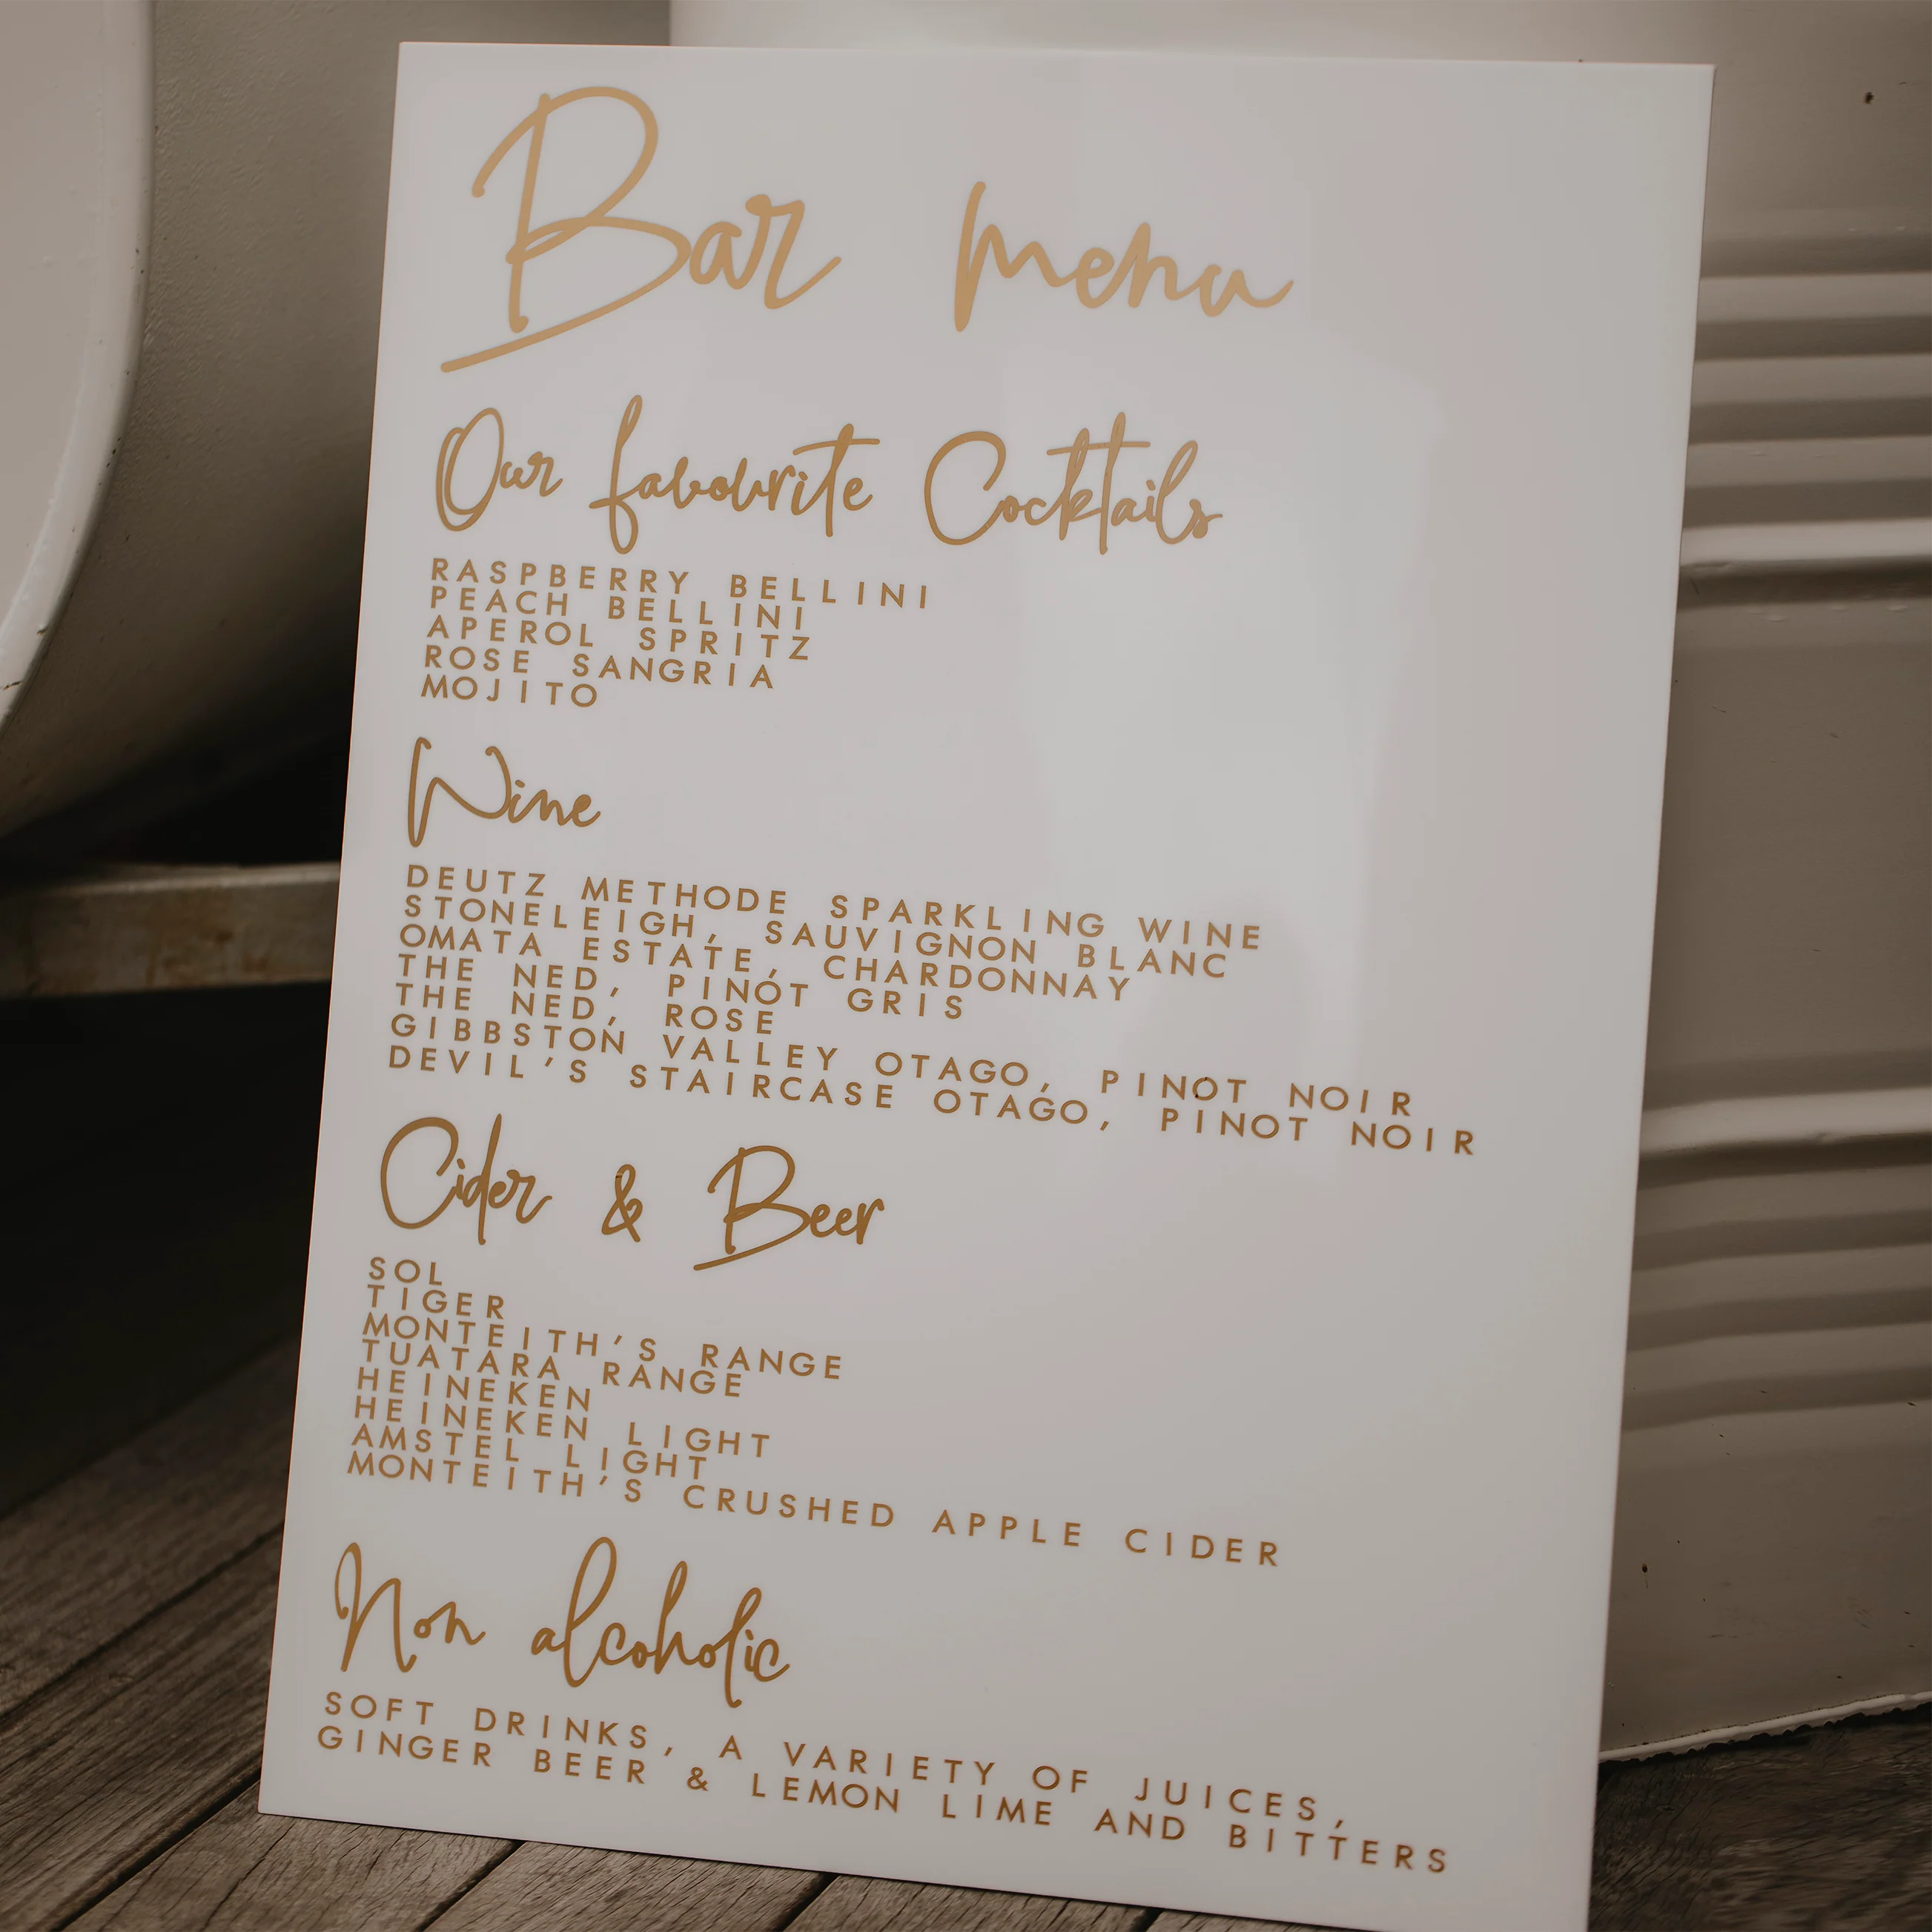 Bar menu
Our favourite Cocktails
RASPBERRY BELLINI
PEACH BELLINI
APEROL SPRITZ
ROSE SANGRIA
MOJITO
Wine
DEUTZ METHODE SPARKLING WINE
STONELEIGH, SAUVIGNON BLANC
OMATA ESTATE, CHARDONNAY
THE NED, PINOT GRIS
THE NED, ROSE
GIBBSTON VALLEY OTAGO, PINOT NOIR
DEVIL'S STAIRCASE OTAGO, PINOT NOIR
Cider & Beer
SOL
TIGER
MONTEITH'S RANGE
TUATARA RANGE
HEINEKEN
HEINEKEN LIGHT
AMSTEL LIGHT
MONTEITH'S CRUSHED APPLE CIDER
Non alcoholic
SOFT DRINKS, A VARIETY OF JUICES,
GINGER BEER & LEMON LIME AND BITTERS